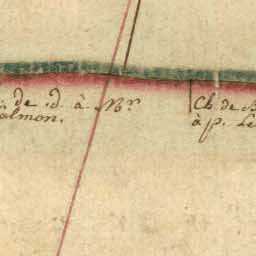 de d. à Mr.
almon.
Ch. de B
à p. Le